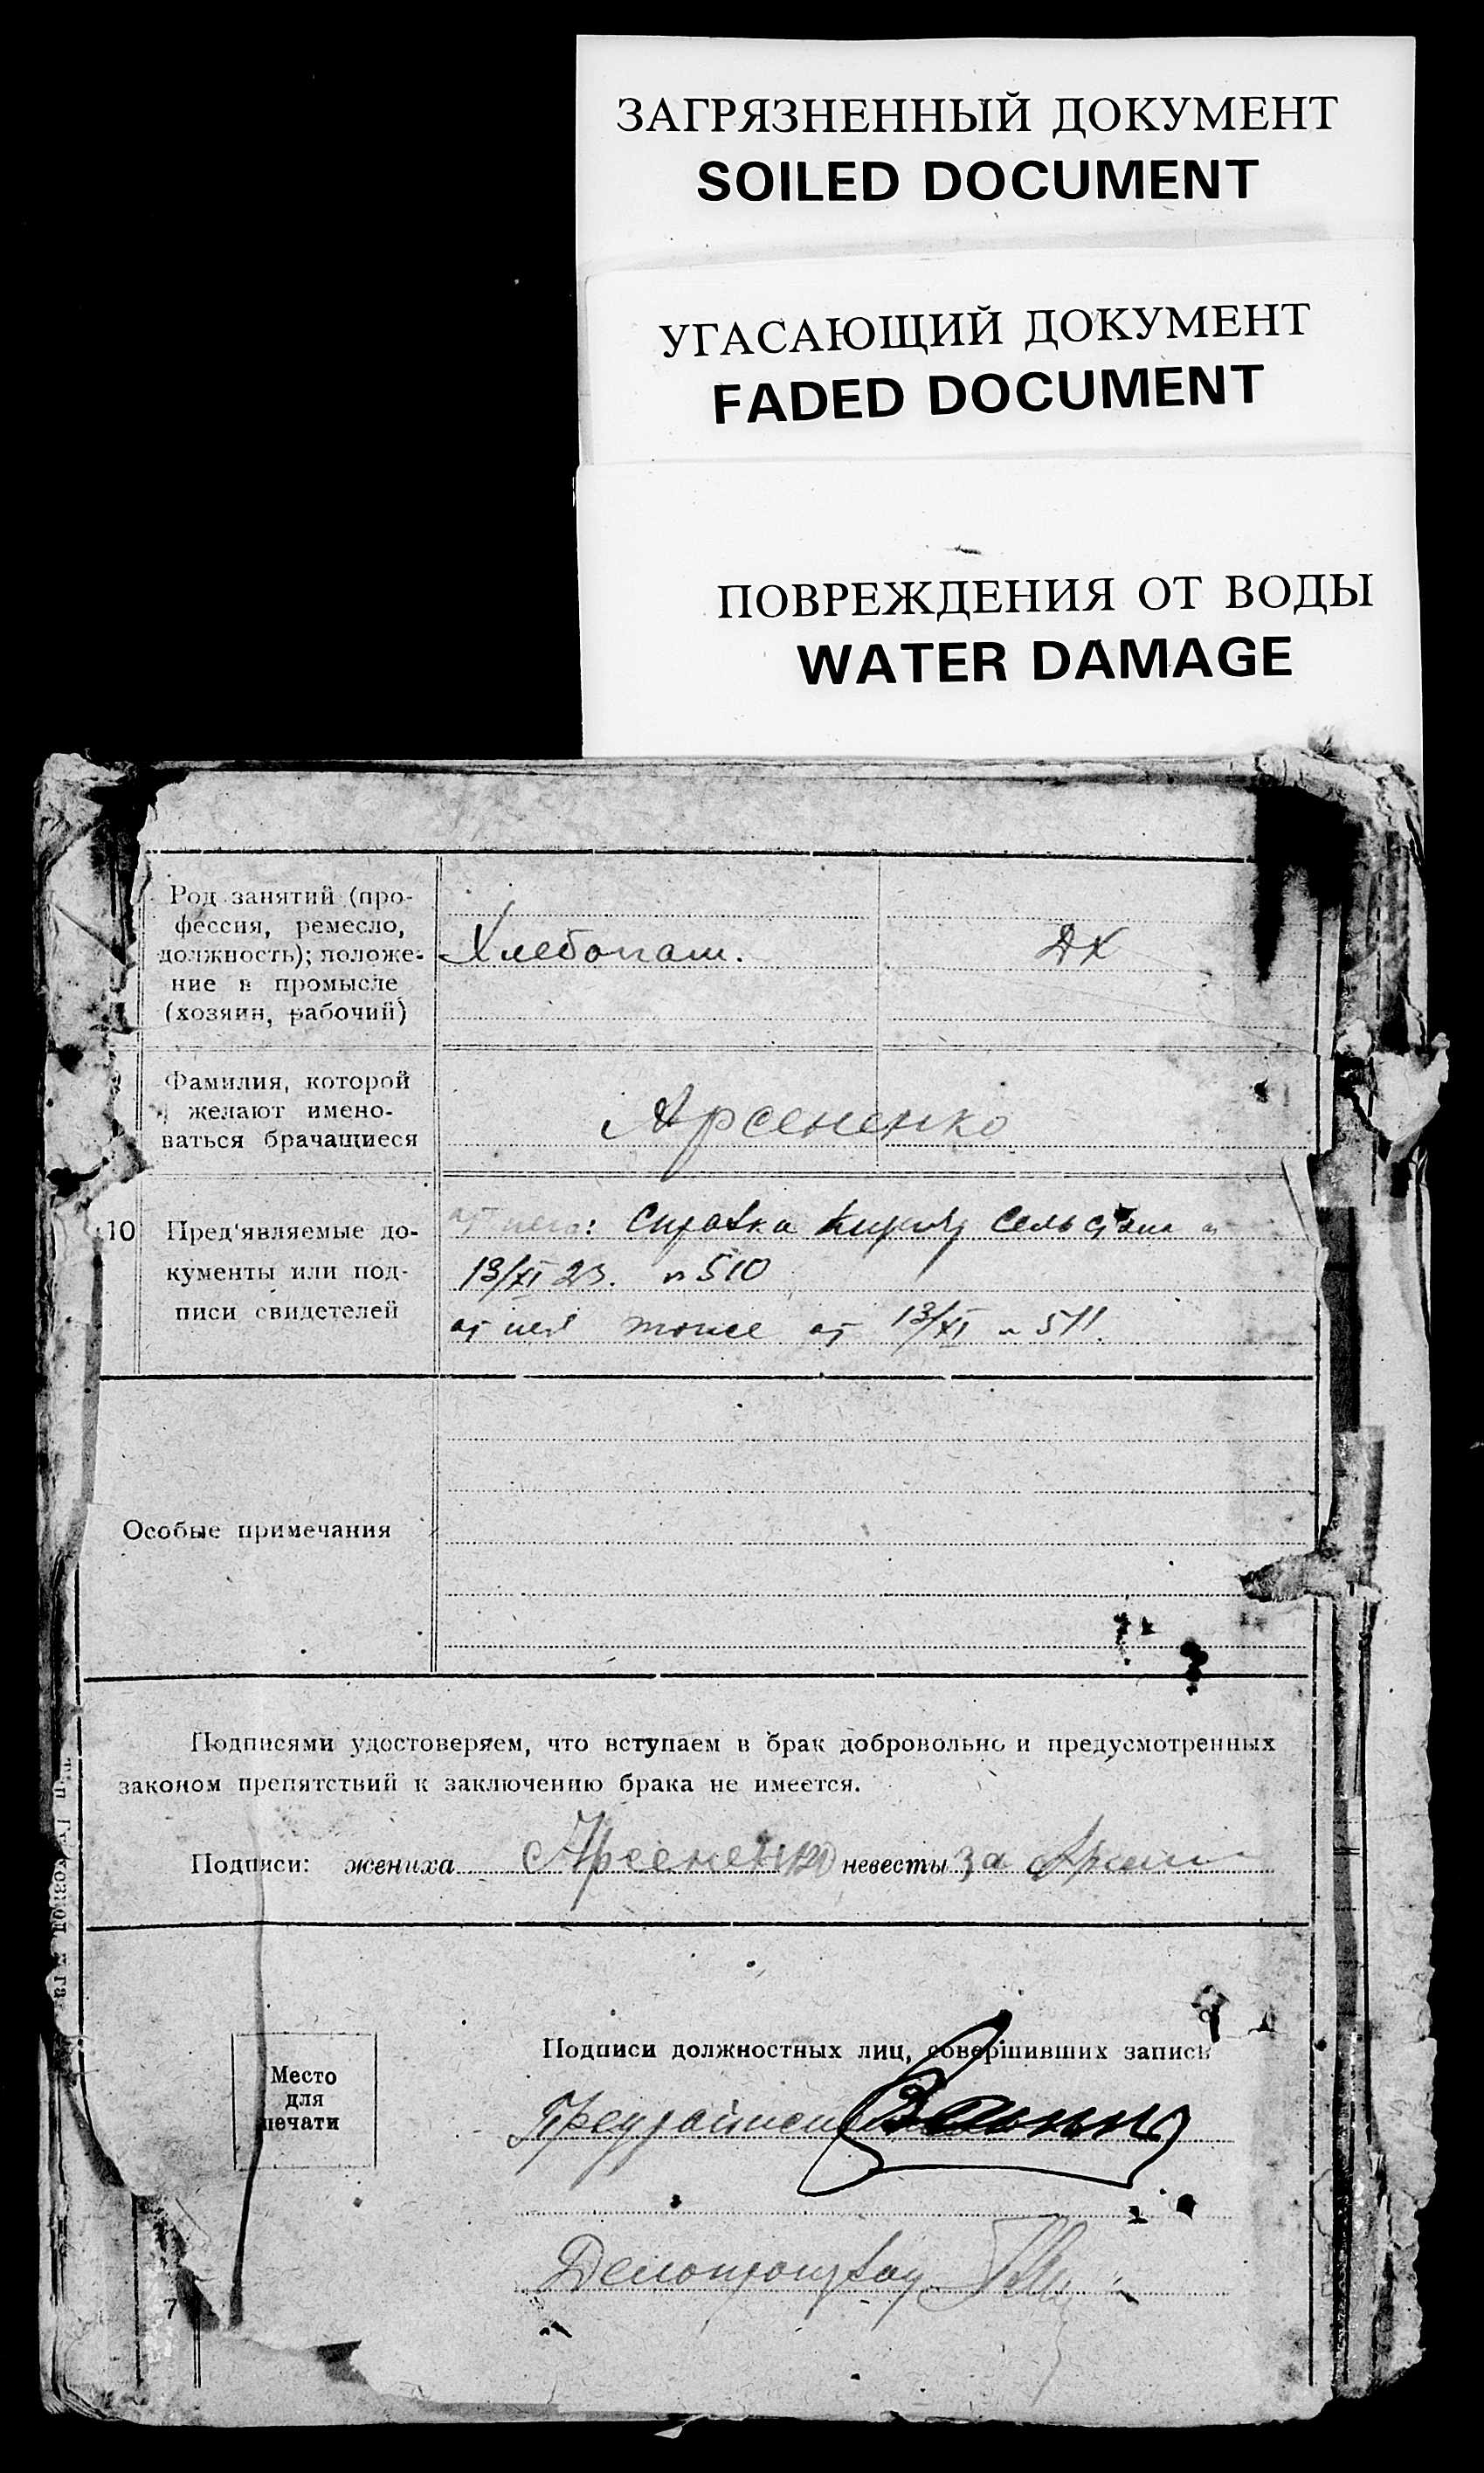 ЗАГРЯЗНЕННЫЙ ДОКУМЕНТ
SOILED DOCUMENT
УГАСАЮЩИЙ ДОКУМЕНТ
FADED DOCUMENT
ПОВРЕЖДЕНИЯ ОТ ВОДЫ
WATER DAMAGE
Род занятий (про-
фессия, ремесло,
должность); положе-
ние в промысле
(хозяин, рабочий)
Хлебопаш.
ДХ
Фамилия, которой
желают имено-
ваться брачащиеся
Арсененко
10
Пред'являемые до-
кументы или под-
писи свидетелей
от него: справка
13/XI 23. № 510
от нея тоже от 13/XI № 511.
Особые примечания
Подписями удостоверяем, что вступаем в брак добровольно и предусмотренных
законом препятствий к заключению брака не имеется.
Подписи: жениха Арсененко невесты за
Место
для
печати
Подписи должностных лиц, совершивших запись
7